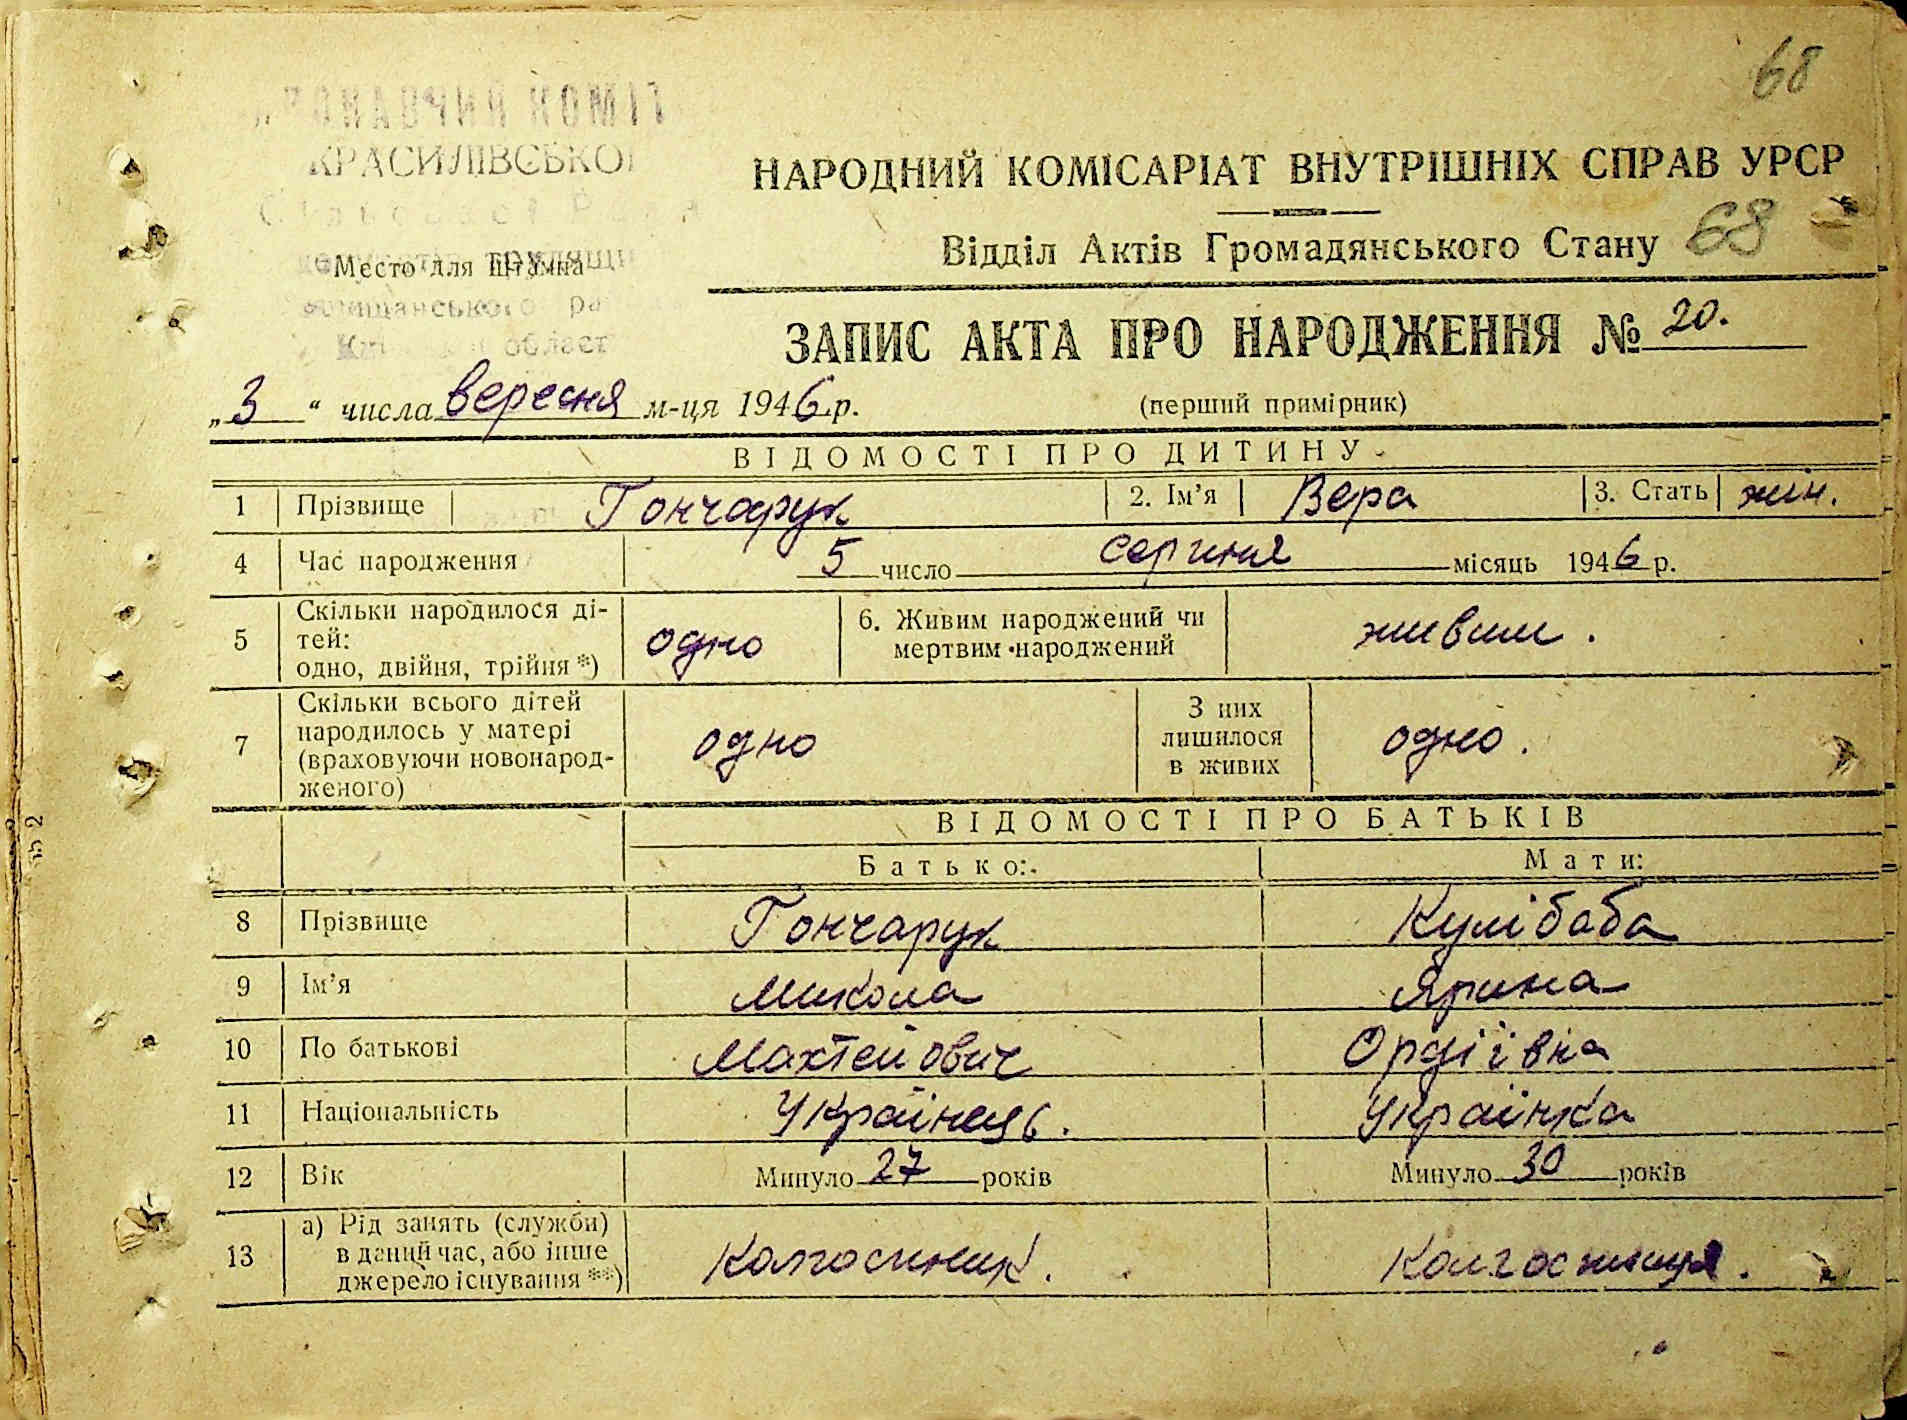 68
КРАСИЛІВСЬКОЇ
Место для Штампа
НАРОДНИЙ КОМІСАРІАТ ВНУТРІШНІХ СПРАВ УРСР
Відділ Актів Громадянського Стану 68
ЗАПИС АКТА ПРО НАРОДЖЕННЯ № 20.
„3“ числа вересня м-ця 1946 р. (перший примірник)
ВІДОМОСТІ ПРО ДИТИНУ
1 Прізвище Гончарук 2. Ім’я Вера 3. Стать жін.
4 Час народження 5 число серпня місяць 1946 р.
5 Скільки народилося ді-
тей:
одно, двійня, трійня *) одно 6. Живим народжений чи
мертвим народжений живим.
7 Скільки всього дітей
народилось у матері
(враховуючи новонарод-
женого) одно З них
лишилося
в живих одно.
ВІДОМОСТІ ПРО БАТЬКІВ
Батько: Мати:
8 Прізвище Гончарук Кулібаба
9 Ім’я Микола Ярина
10 По батькові Махтейович Ордіївна
11 Національність Українець. Українка
12 Вік Минуло 27 років Минуло 30 років
13 а) Рід занять (служби)
в даний час, або інше
джерело існування **) Колгоспник. Колгоспниця.